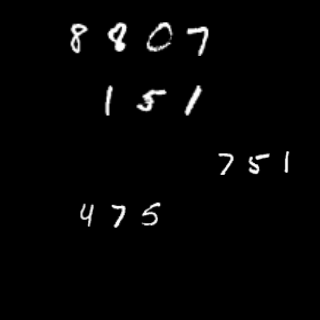 8807
151
751
475